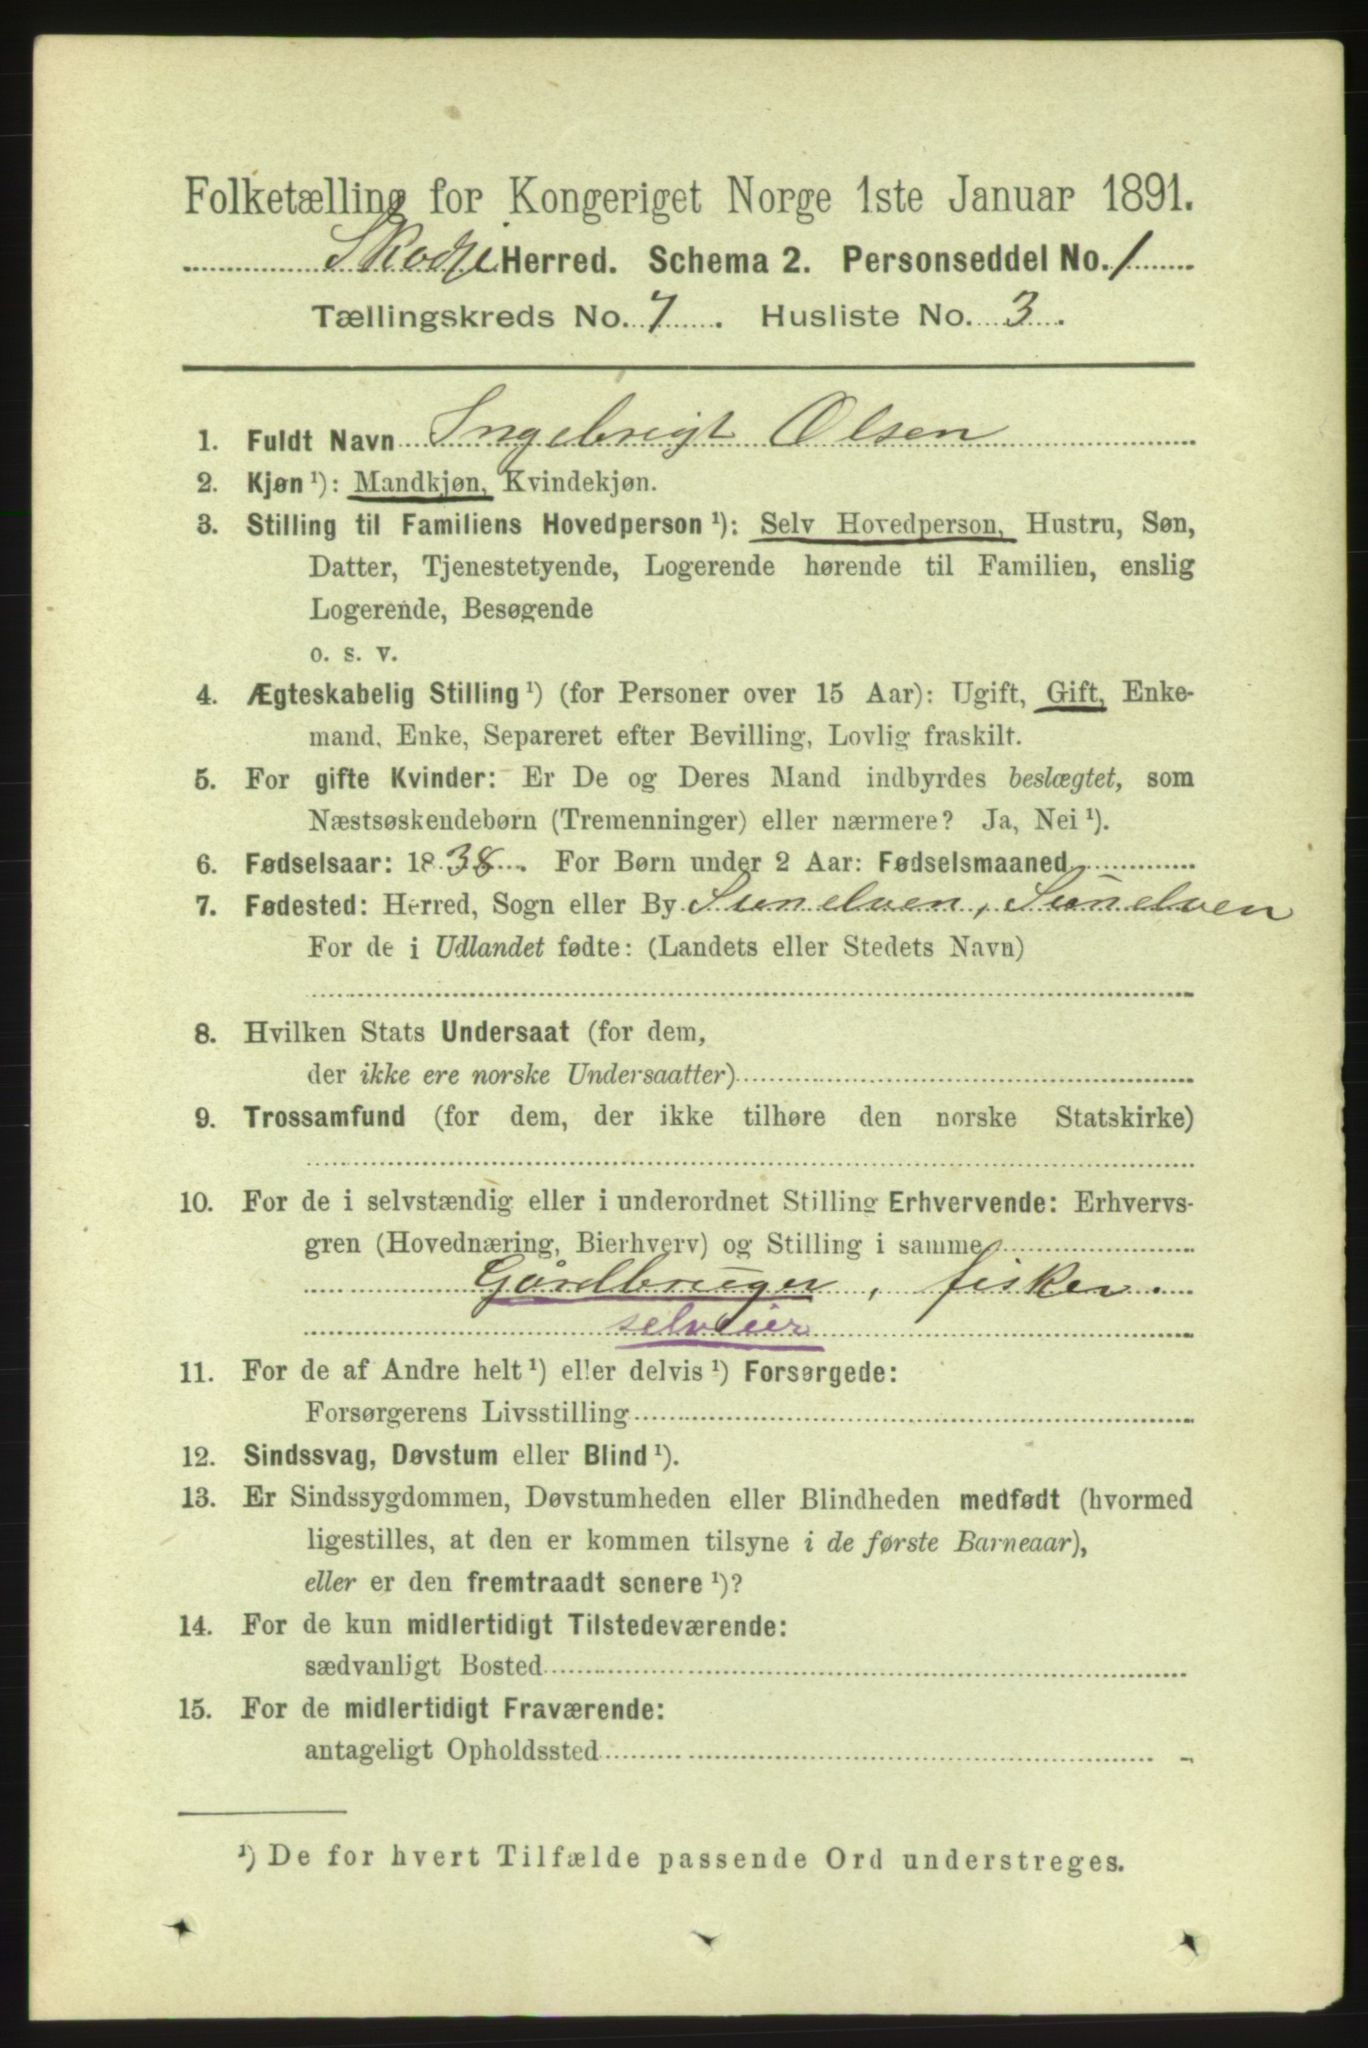 Folketælling for Kongeriget Norge 1ste Januar 1891.
Skodje Herred. Schema 2. Personseddel No. 1
Tællingskreds No. 7. Husliste No. 3.
1. Fuldt Navn Ingebrigt Olsen
2. Kjøn ¹): Mandkjøn, Kvindekjøn.
3. Stilling til Familiens Hovedperson ¹): Selv Hovedperson, Hustru, Søn,
Datter, Tjenestetyende, Logerende hørende til Familien, enslig
Logerende, Besøgende
o. s. v.
4. Ægteskabelig Stilling ¹) (for Personer over 15 Aar): Ugift, Gift, Enke-
mand, Enke, Separeret efter Bevilling, Lovlig fraskilt.
5. For gifte Kvinder: Er De og Deres Mand indbyrdes beslægtet, som
Næstsøskendebørn (Tremenninger) eller nærmere? Ja, Nei ¹).
6. Fødselsaar: 1838. For Børn under 2 Aar: Fødselsmaaned
7. Fødested: Herred, Sogn eller By Sunelven, Sunelven
For de i Udlandet fødte: (Landets eller Stedets Navn)
8. Hvilken Stats Undersaat (for dem,
der ikke ere norske Undersaatter)
9. Trossamfund (for dem, der ikke tilhøre den norske Statskirke)
10. For de i selvstændig eller i underordnet Stilling Erhvervende: Erhvervs-
gren (Hovednæring, Bierhverv) og Stilling i samme
Gårdbruger, fisker.
selveier
11. For de af Andre helt ¹) eller delvis ¹) Forsørgede:
Forsørgerens Livsstilling
12. Sindssvag, Døvstum eller Blind ¹).
13. Er Sindssygdommen, Døvstumheden eller Blindheden medfødt (hvormed
ligestilles, at den er kommen tilsyne i de første Barneaar),
eller er den fremtraadt senere ¹)?
14. For de kun midlertidigt Tilstedeværende:
sædvanligt Bosted
15. For de midlertidigt Fraværende:
antageligt Opholdssted
¹) De for hvert Tilfælde passende Ord understreges.